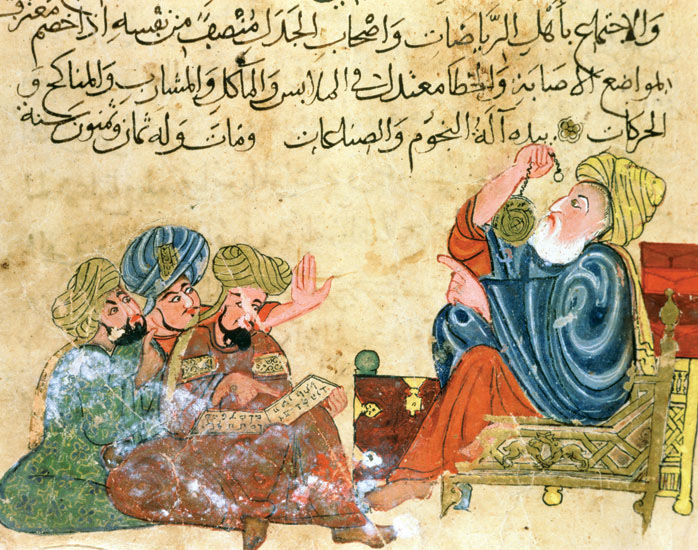 والاجتماع بأهل الرياضات واصحاب الجدل منصفا من نفسه اذا خصم معترفا
لمواضع الاصابة والخطا معتدل في الملابس والمآكل والمشارب والمناكح و
الحركات بيده آلة النجوم والصناعات ومات وله ثمان سنة